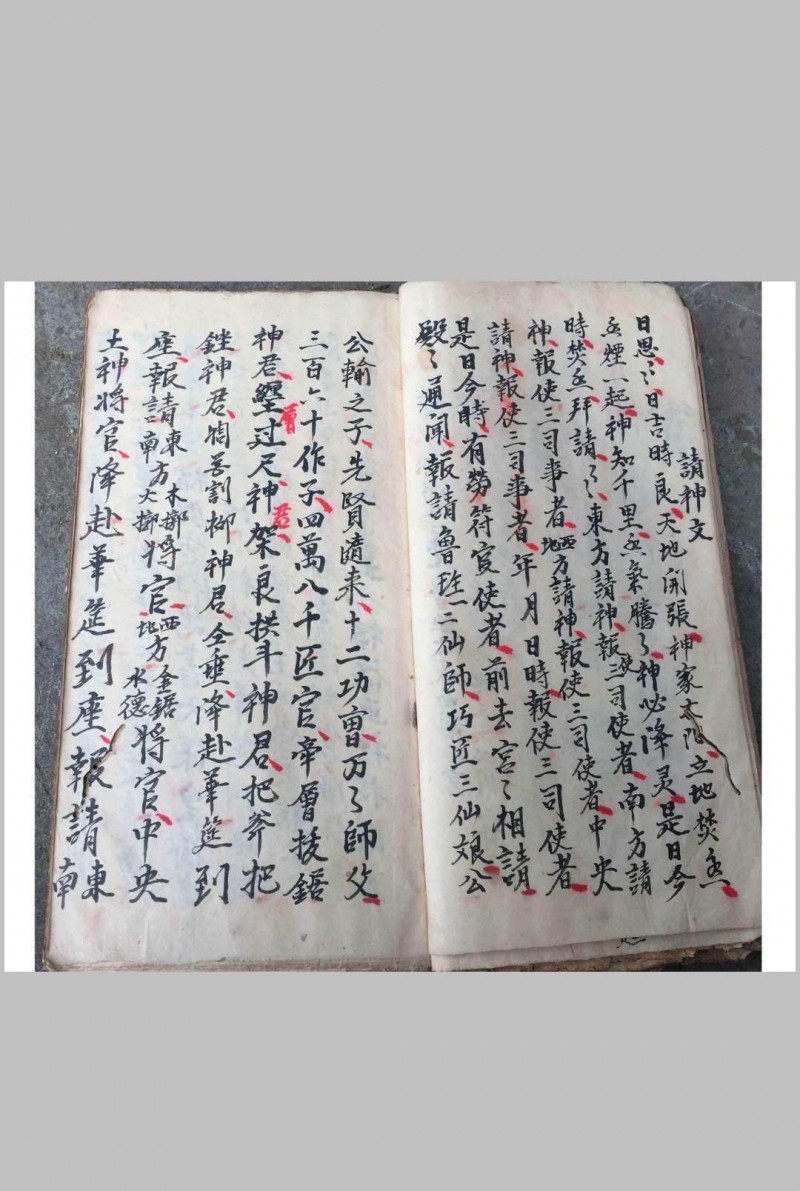 請神文
日恩〻日吉時良、天地開張神家太陛、立地焚香、
香煙一起神知千里、香氣騰〻神必降灵、是日今
時焚香拜請〻〻東方請神、報使三司使者、南方請
神、報使三司事者、西方地請神、報使三司使者、中央
請神、報使三司事者、年月日時報使三司使者、
是日今時、有勞符官使者、前去宮〻相請、
殿〻通聞、報請魯班一二仙師、巧匠三仙娘、公
公輸之子、先賢隨来、十二功曹、万〻師父、
三百六十作子、四萬八千匠官、帝層拔鋸
神君、層过尺、神君、架良拱斗神君、把斧把
銼神君、割柳神君、仝垂降赴華筵到
座、報請東方木擲南方火擲將官、西方金鋸地水德將官、中央
土神將官、降赴華筵到座、報請東南